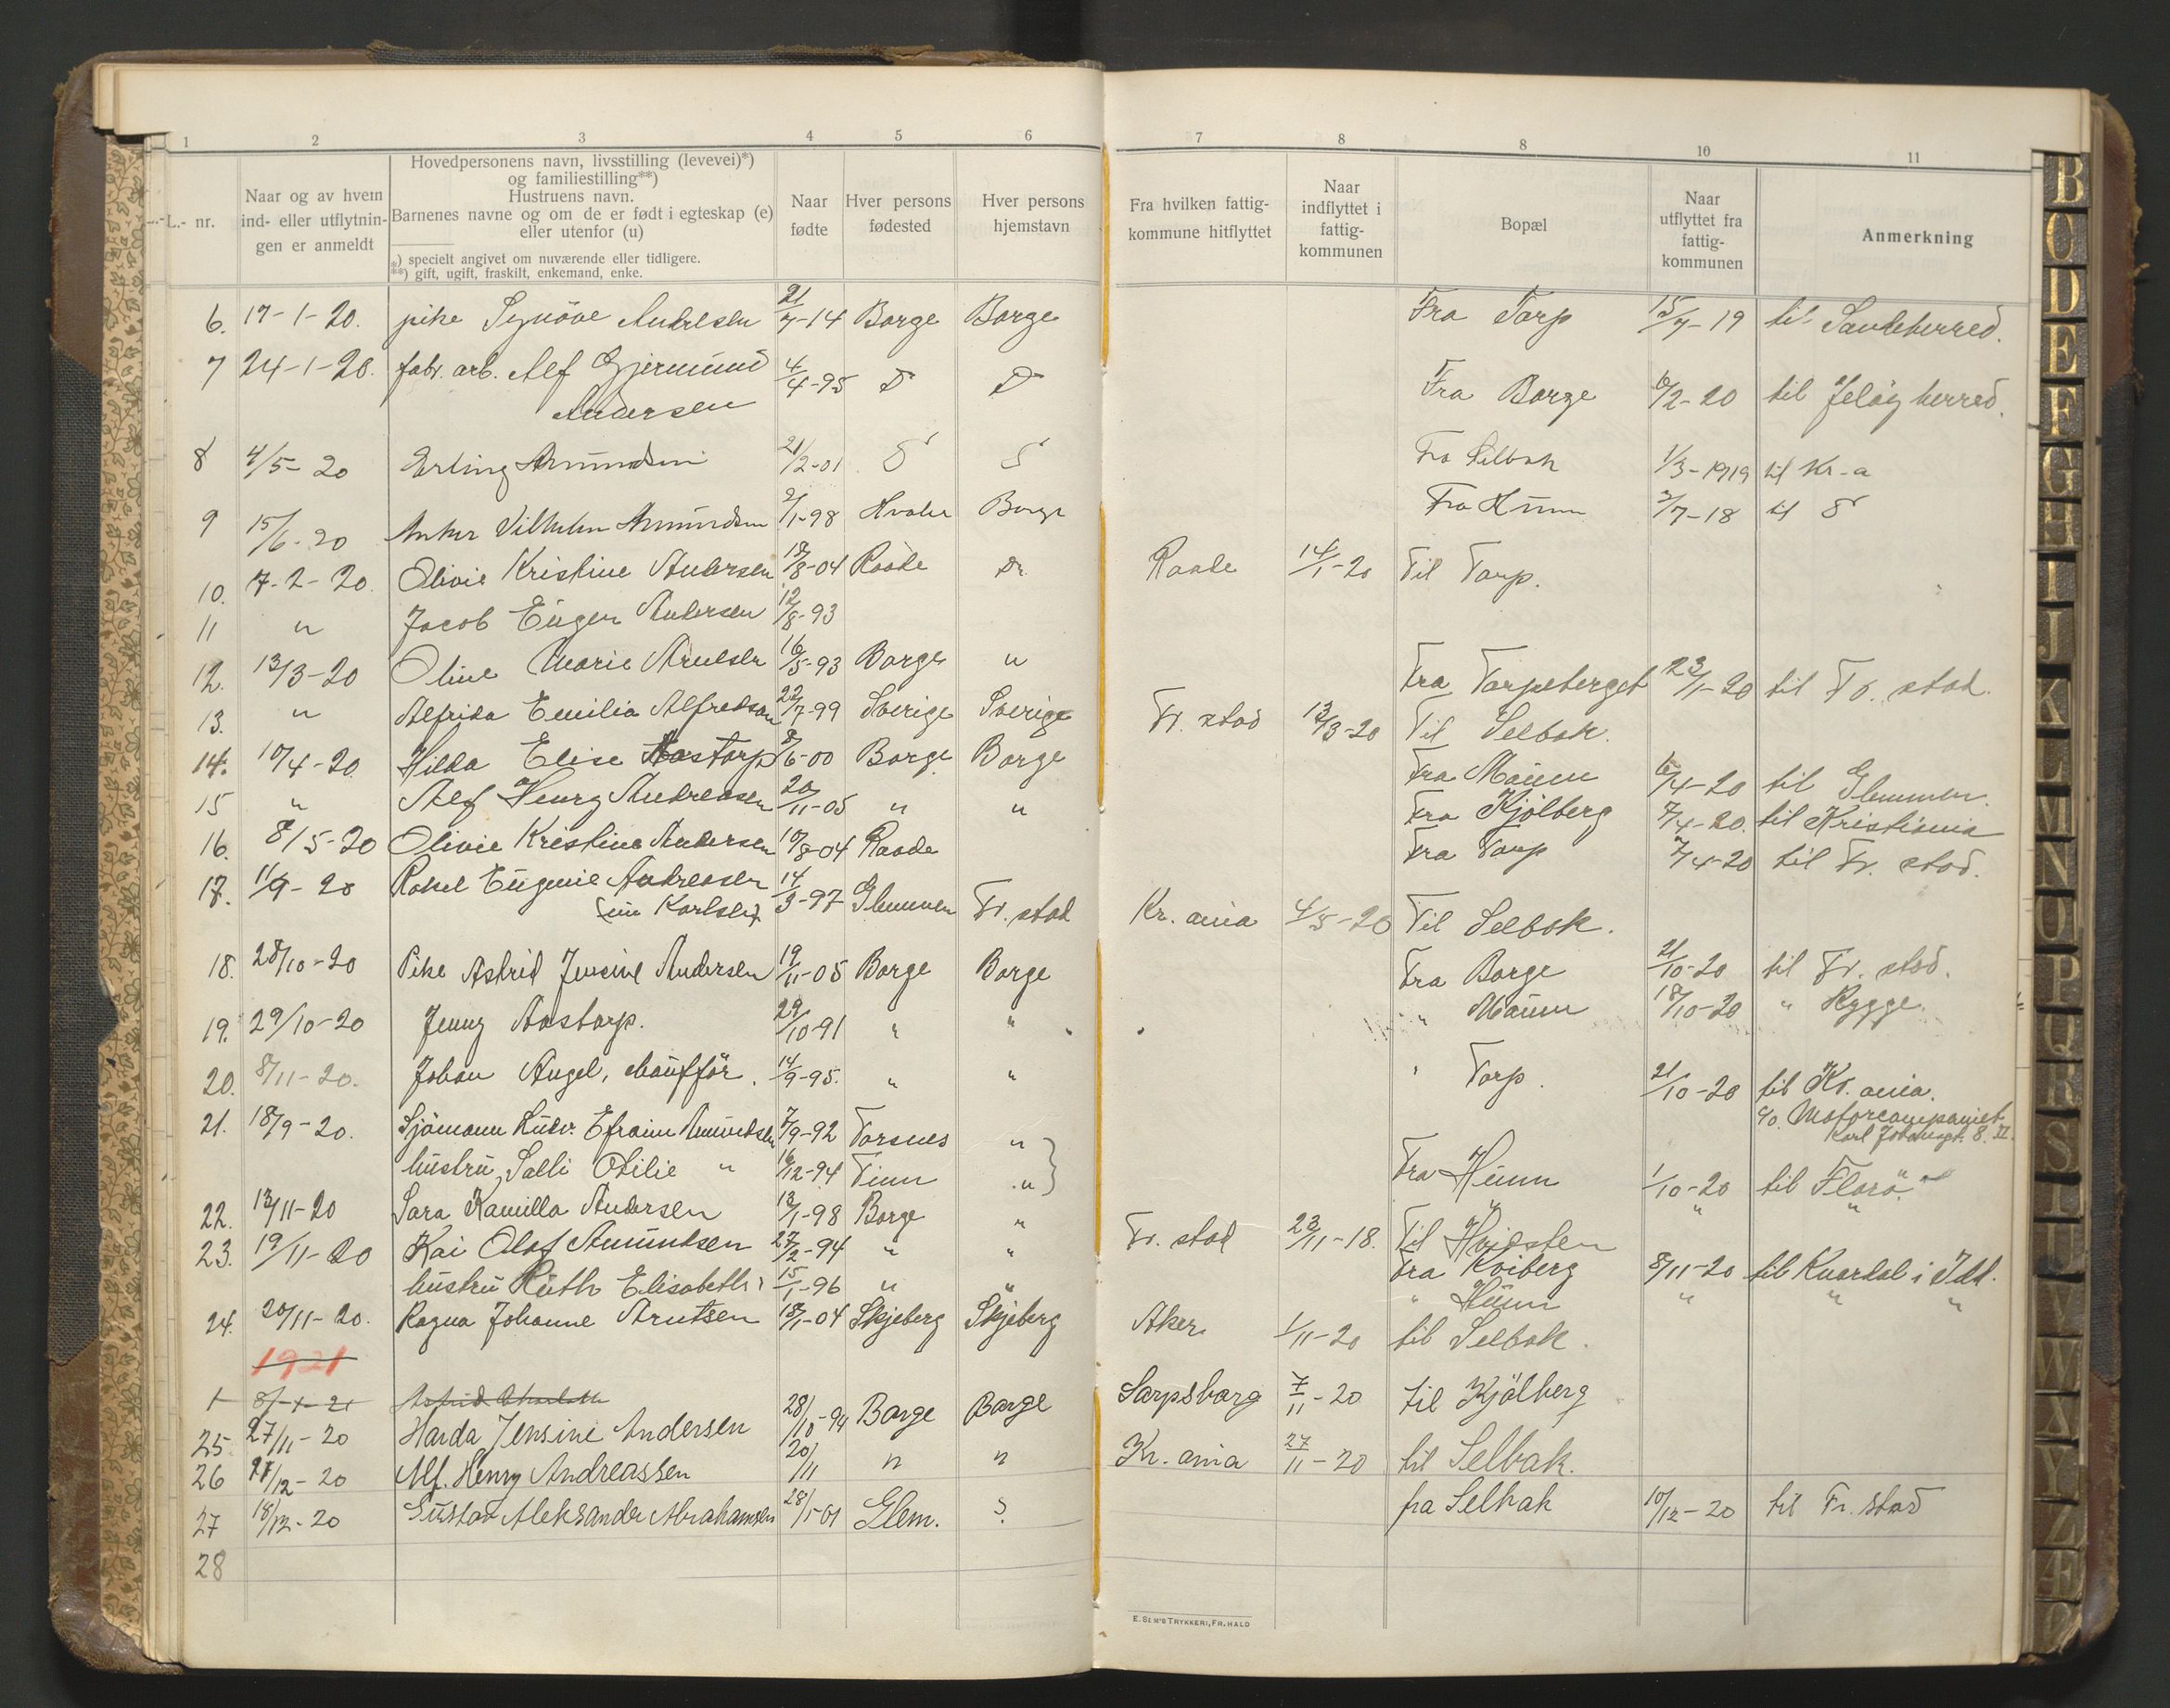 1 2 3 4 5 6 7 8 8 10 11
L.- nr.
Naar og av hvem
ind- eller utflytnin-
gen er anmeldt
Hovedpersonens navn, livsstilling (levevei)*)
og familiestilling**)
Hustruens navn.
Barnenes navne og om de er født i egteskap (e)
eller utenfor (u)
*) specielt angivet om nuværende eller tidligere.
**) gift, ugift, fraskilt, enkemand, enke.
Naar
fødte
Hver persons
fødested
Hver persons
hjemstavn
Fra hvilken fattig-
kommune hitflyttet
Naar
indflyttet i
fattig-
kommunen
Bopæl
Naar
utflyttet fra
fattig-
kommunen
Anmerkning
6. 17-1-20. pike Synöve Andresen 21/7-14 Borge Borge Fra Torp 15/7-19 til Sandeherred.
7 24-1-20. fabr. arb. Alf Gjermund 4/4-95 D D Fra Borge 6/2-20 til Jelöy herred.
Andersen
8 4/5-20 Erling Amundsen 21/2-01 Fra Selbak 1/3-1919 til Kr-a
9 15/6-20 Anker Vilhelm Amundsen 2/1-98 Hvaler Borge Fra Hunn 2/7-18 til
10. 7-2-20. Olivie Kristine Andersen 18/8-04 Raade Do. Raade 14/1-20 Til Torp.
11 " Jacob Eugen Andersen 12/8-93
12. 13/3-20 Oline Marie Arnesen 16/5-93 Borge " Fra Torpeberget 23/1-20 til Fr. stad.
13. " Alfrida Emilia Alfredson 22/7-99 Sverige Sverige Fr. stad 13/3-20 Til Selbak.
14. 10/4-20 Hilda Elise Aastorp 8/6-00 Borge Borge Fra Moum 6/4-20 til Glemmen.
15 " Alf Henry Andreasen 20/11-05 " " Fra Kjölberg 7/4-20. til Kristiania
16. 8/5-20 Olivie Kristine Andersen 18/8-04 Raade Fra Torp 7/4-20 til Fr. stad.
17. 11/9-20 Rakel Eugenie Andreasen 14/3-97 Glemmen Fr. stad Kr. ania 4/5-20 Til Selbak.
Karlsen)
18. 28/10-20 Pike Astrid Jensine Andersen 19/11-05 Borge Borge Fra Borge 21/10-20 til Fr. stad.
19. 29/10-20 Jenny Aastorp. 29/10-91 " " " Moum 18/10-20 " Rygge.
20. 8/11-20. Johan Angel, chaufför. 14/9-95. " " " Torp. 21/10-20 til Kr. ania.
c/o. Motorcompaniet
Karl Johansgt. 8. II.
21. 18/9-20. Sjömann Ludv. Efraim Amundsen 7/9-92 Torsnes "
hustru, Salli Otilie " 16/12-94 Tinn " Fra Hunn 1/10-20 til Florö.
22. 13/11-20 Sara Kamilla Andersen 13/1-98 Borge " Fr. stad 23/11-18. Til Hvidsten
23. 19/11-20 Kai Olaf Amundsen 27/2-94 " " Fra Kviberg 8/11-20 til Kvardal i Idd.
hustru Ruth Elisabeth 15/1-96 " " " Hunn " " "
24. 20/11-20. Ragna Johanne Arntsen 18/1-04 Skjeberg Skjeberg Aker. 1/11-20 til Selbak.
1921
1 8/-1-21 Astrid Charlotte
25 27/11-20 Harda Jensine Andersen 28/10-94 Borge Borge Sarpsborg 7/11-20 til Kjölberg
26 27/12-20 Alf. Henry Andreassen 20/11 " " Kr. ania 27/11-20 til Selbak.
27 18/12-20 Gustav Aleksander Abrahamsen 28/1-01 Glem. fra Selbak 10/12-20 til Fr. stad
28
E. SEM'S TRYKKERI, FR. HALD
B
C
D
E
F
G
H
I
J
K
L
M
N
O
P
Q
R
S
T
U
V
W
X
Y
Z
Æ
Ø